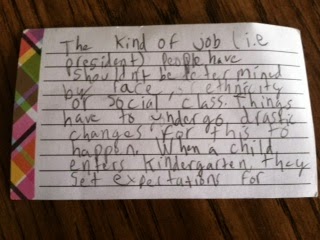 The kind of job (i.e
president) people have
shouldn't be determined
by race, ethnicity
or social class. Things
have to undergo drastic
changes for this to
happen. When a child
enters kindergarten, they
set expectations for